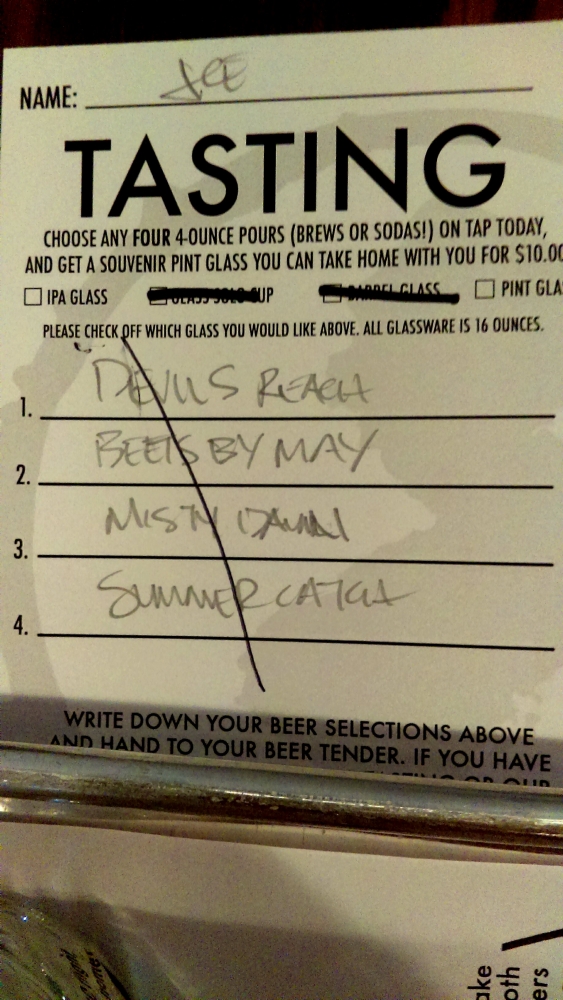 NAME: JOE
TASTING
CHOOSE ANY FOUR 4-OUNCE POURS (BREWS OR SODAS!) ON TAP TODAY,
AND GET A SOUVENIR PINT GLASS YOU CAN TAKE HOME WITH YOU FOR $10.00
IPA GLASS GLASS SOLO CUP BARREL GLASS PINT GLA
PLEASE CHECK OFF WHICH GLASS YOU WOULD LIKE ABOVE. ALL GLASSWARE IS 16 OUNCES.
1. DEVILS REACH
2. BEETS BY MAY
3. MISTY DAWN
4. SUMMER CATCH
WRITE DOWN YOUR BEER SELECTIONS ABOVE
AND HAND TO YOUR BEER TENDER. IF YOU HAVE
TASTING OR OUR
ake
oth
ers